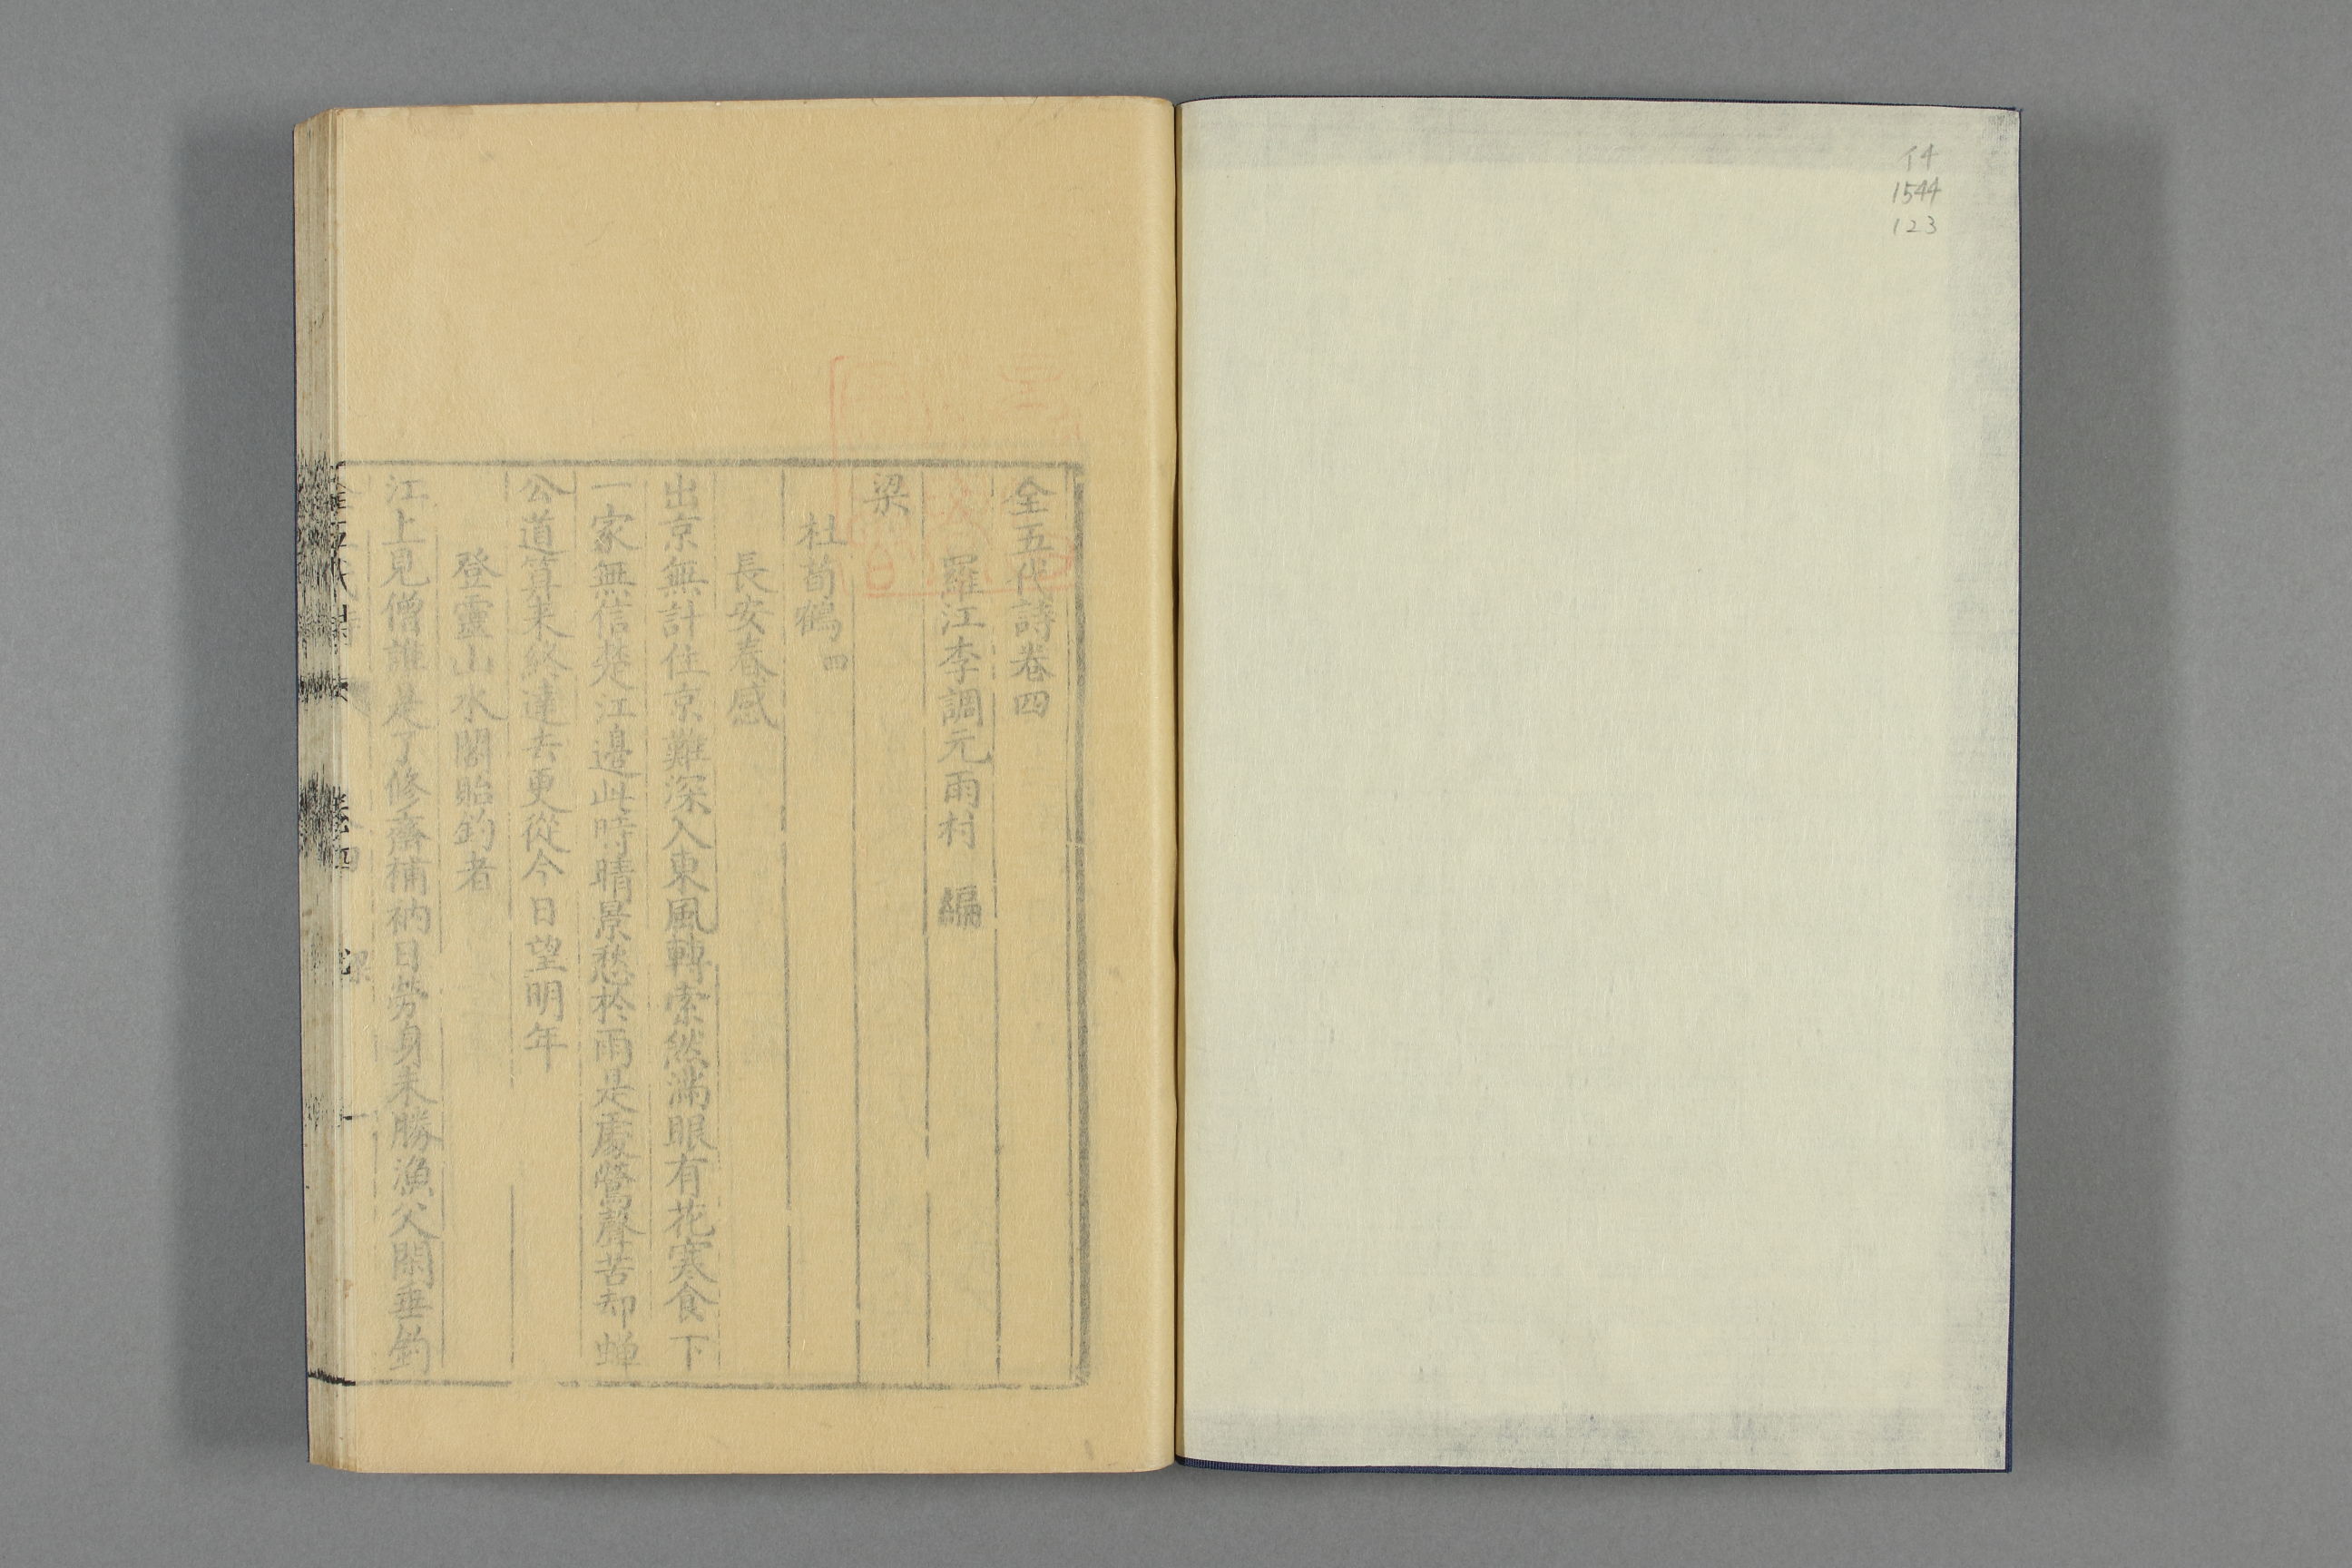 イ4
1544
123
全五代詩卷四
羅江李調元雨村 編
梁
杜荀鶴 四
長安春感
出京無計住京難深入東風轉索然滿眼有花寒食下
一家無信楚江邊此時晴景愁於雨是處鶯聲苦却蟬
公道算来終達去更從今日望明年
登靈山水閣貽釣者
江上見僧誰是了修齋補衲日勞身未勝漁父閑垂釣